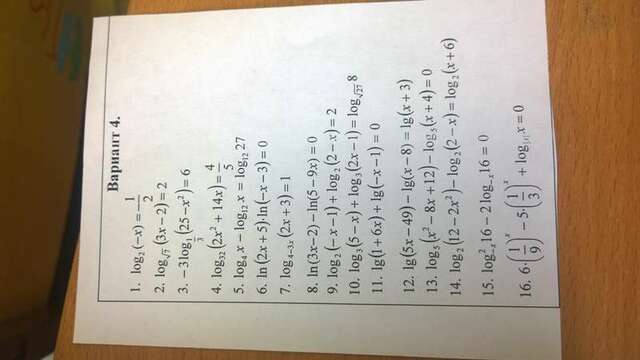 Вариант 4.
1. log₂(−x) = −1/2
2. log_{√7}(3x − 2) = 2
3. −3log_{1/3}(25 − x²) = 6
4. log₃₂(2x² + 14x) = 4/5
5. log₄ x − log₁₂ x = log₁₂ 27
6. ln(2x + 5)·ln(−x − 3) = 0
7. log_{4−3x}(2x + 3) = 1
8. ln(3x − 2) − ln(5 − 9x) = 0
9. log₂(−x − 1) + log₂(2 − x) = 2
10. log₃(5 − x) + log₃(2x − 1) = log_{√27} 8
11. lg(1 + 6x) + lg(−x − 1) = 0
12. lg(5x − 49) − lg(x − 8) = lg(x + 3)
13. log₅(x² − 8x + 12) − log₅(x + 4) = 0
14. log₂(12 − 2x²) − log₂(2 − x) = log₂(x + 6)
15. 16 − 2log₋ₓ 16 = 0
16. 6·(1/9)ˣ − 5·(1/3)ˣ + x = 0